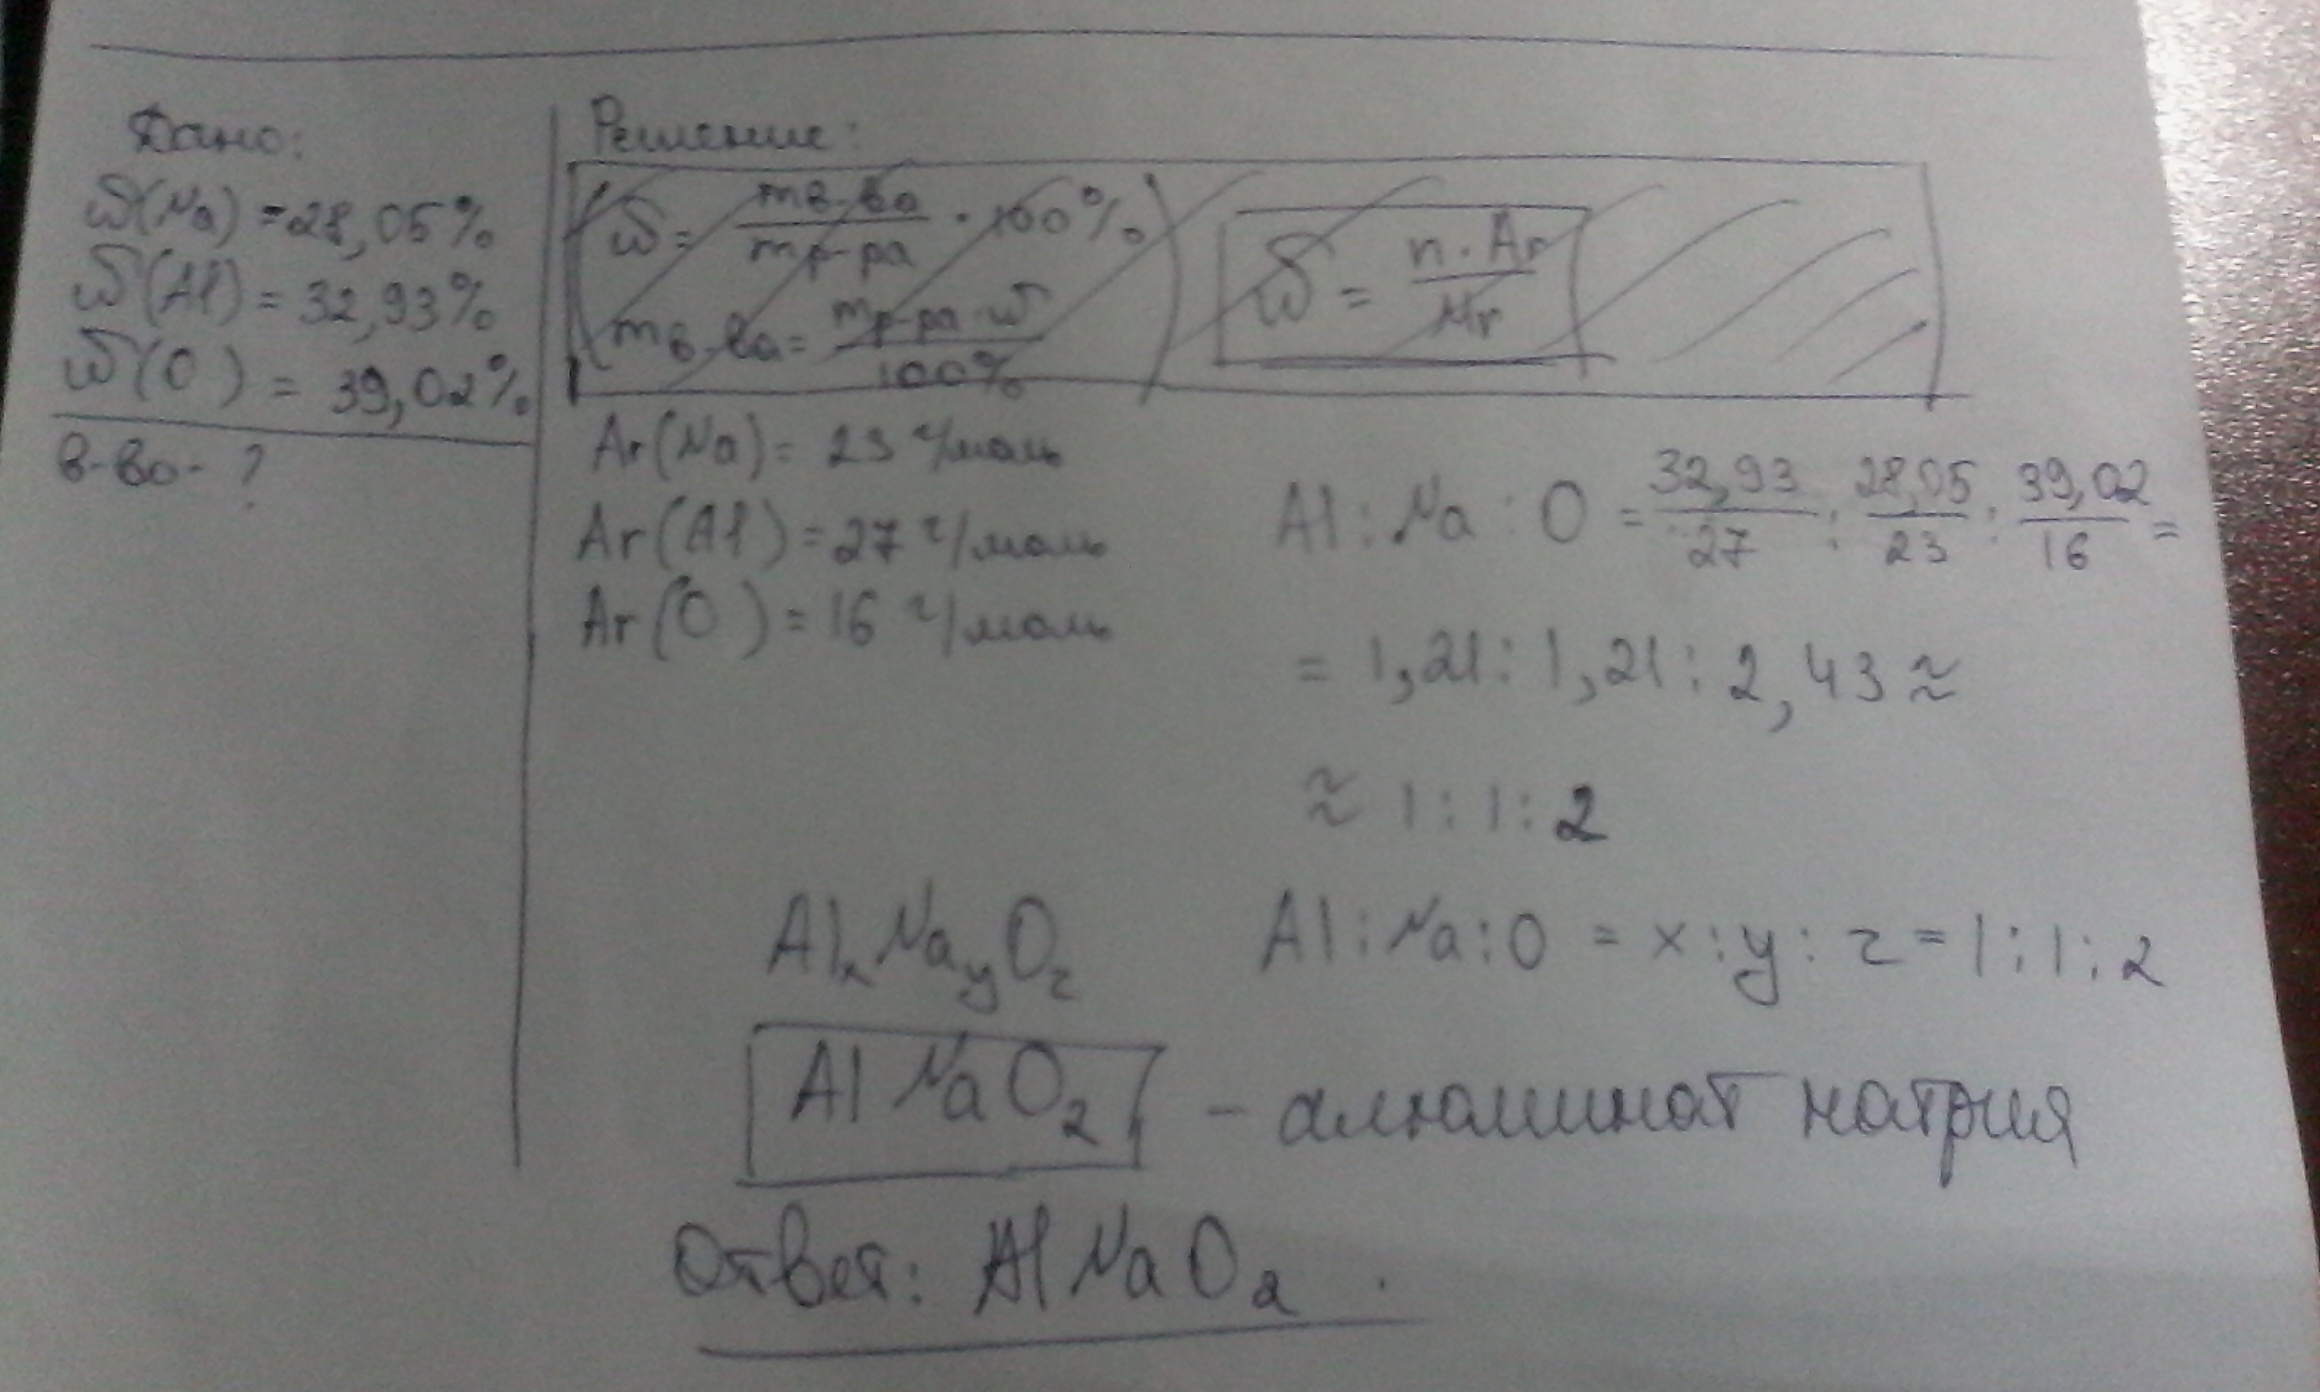 Дано:
ω(Na) = 28,05%
ω(Al) = 32,93%
ω(O) = 39,02%
в-во - ?
Решение:
ω = mв-ва / mр-ра · 100%
mв-ва = mр-ра · ω / 100%
ω = n · Ar / Mr
Ar(Na) = 23 г/моль
Ar(Al) = 27 г/моль
Ar(O) = 16 г/моль
Al : Na : O = 32,93/27 : 28,05/23 : 39,02/16 =
= 1,21 : 1,21 : 2,43 ≈
≈ 1 : 1 : 2
AlxNayOz
Al : Na : O = x : y : z = 1 : 1 : 2
AlNaO2 - алюминат натрия
Ответ: AlNaO2 .